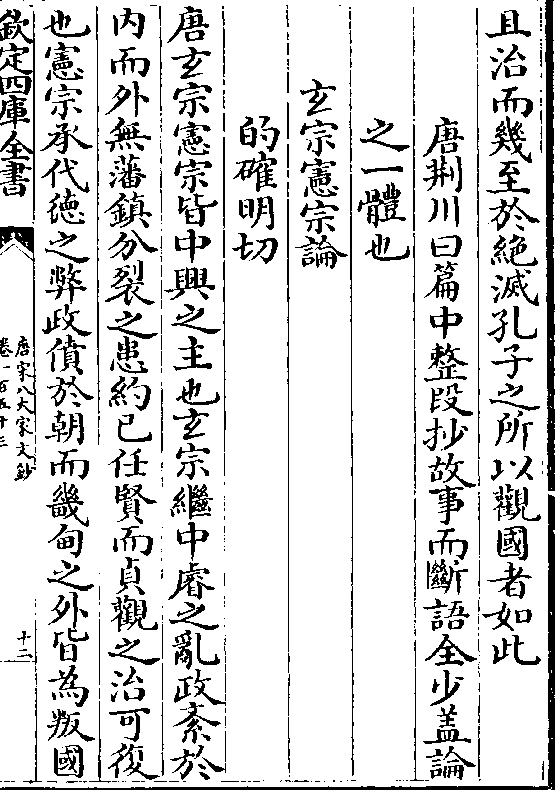 且治而幾至於絶滅孔子之所以觀國者如此
唐荆川曰篇中整段抄故事而斷語全少盖論
之一體也
玄宗憲宗論
的確明切
唐玄宗憲宗皆中興之主也玄宗繼中睿之亂政紊於
内而外無藩鎮分裂之患約己任賢而貞觀之治可復
也憲宗承代徳之弊政僨於朝而畿甸之外皆為叛國
欽定四庫全書
唐宋八大家文鈔
卷一百五十三
十二